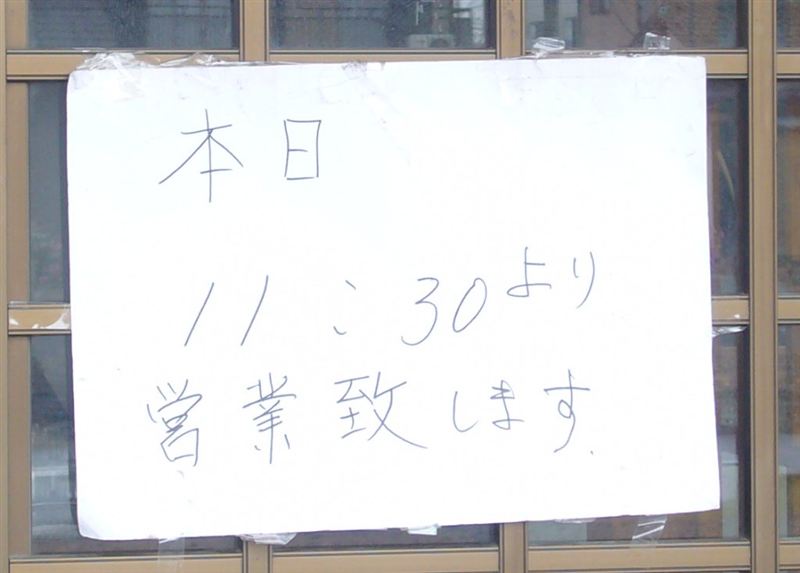 本日
11:30より
営業致します.